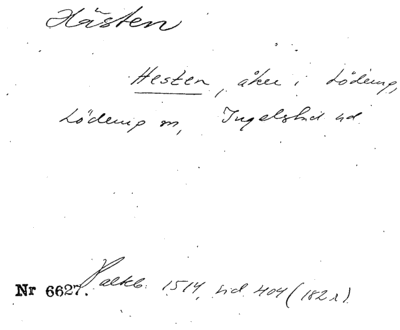 Hästen
Hesten, åker i Löderup,
Löderup sn, Ingelstad hd
Nr 6627. Palkb. 1514, sid 404 (182 r)